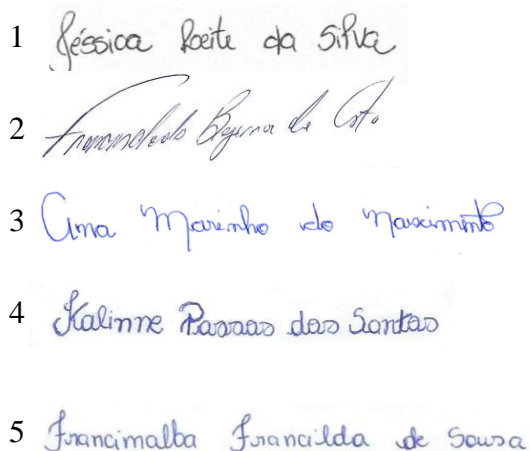 1 Jéssica Leite da Silva
2 Francinaldo Bezerra da Costa
3 Ana Marinho do Nascimento
4 Kalinne Passos dos Santos
5 Francimalba Francilda de Sousa